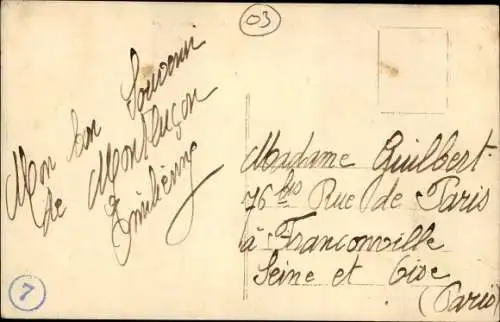 03
Mon bon Souvenir
de Montluçon
Emilienne
Madame Guilbert
76 bis Rue de Paris
à Franconville
Seine et Oise
(Paris)
7